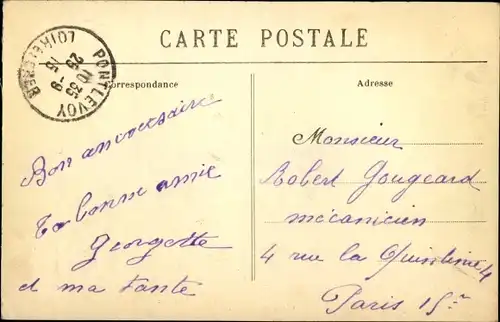 CARTE POSTALE
PONTLEVOY
10 35
25 -9
15
LOIR-ET-CHER
Correspondance
Adresse
Bon anniversaire
Ta bonne amie
Georgette
et ma Tante
Monsieur
Robert Gougeard
mécanicien
4 rue la Quintinie 4
Paris 15e